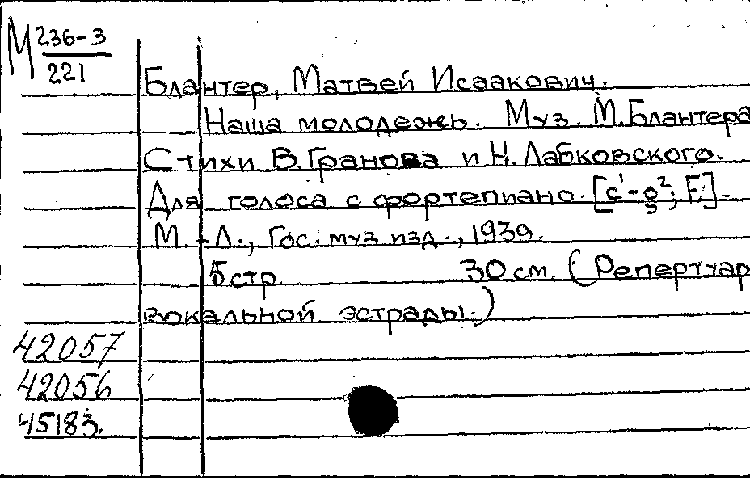 М 236-3
221
Блантер, Матвей Исаакович.
Наша молодежь. Муз. М. Блантера
Стихи В. Гранова и Н. Лабковского.
Для голоса с фортепиано. [c¹-g²; F.] -
М. - Л., Гос. муз. изд., 1939.
5 стр. 30 см. (Репертуар
вокальной эстрады.)
42057
42056
45183.